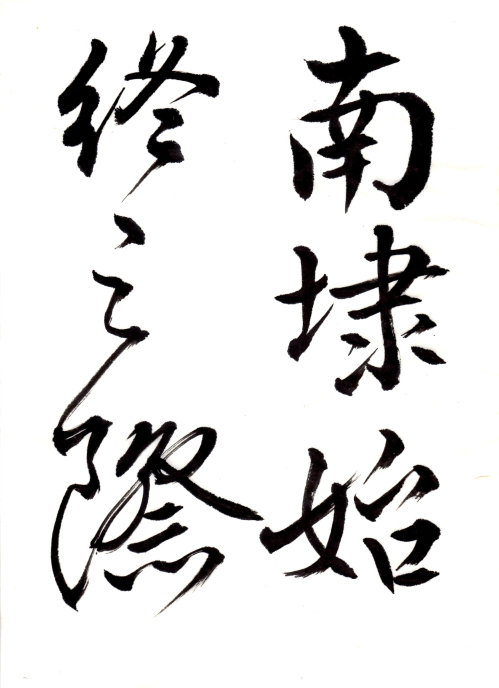 南埭始
終之際